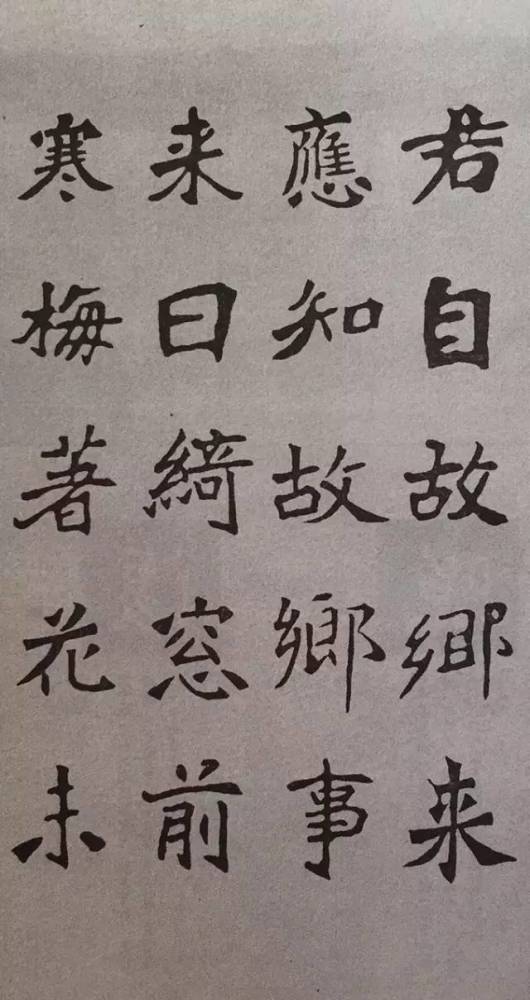 君自故鄉来
應知故鄉事
来曰綺窓前
寒梅著花未